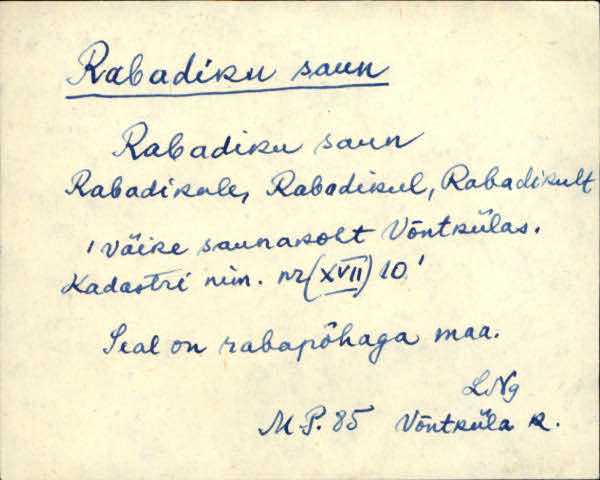 Rabadiku saun
Rabadiku saun
Rabadikule, Rabadikul, Rabadikult
'väike saunakolt Võntkülas.
Kadastri nim. nr (XVII) 10'
Seal on rabapõhaga maa.
LNg
M.P. 85 Võntküla k.